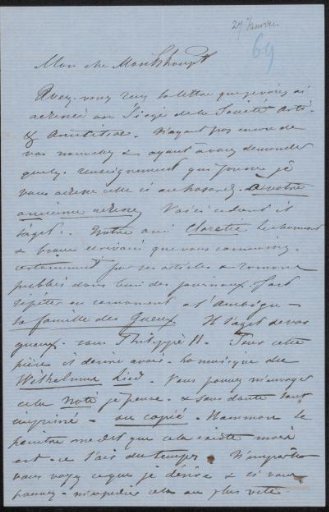 24 Janvier
69
Mon cher
Avez-vous reçu la lettre que je vous ai
adressée au Siège de la Société Arts
& Amitiés. N'ayant pas encore de
vos nouvelles & ayant à vous demander
quelq. renseignement que pour je
vous adresse celle ci au hasard à votre
ancienne adresse. Voici ce dont il
s'agit. Notre ami Claretie
& brave écrivain que vous connaissez
certainement par ses articles & romans
publiés dans tous les journaux fait
répéter en ce moment à l'Ambigu
la famille des Gueux. Il s'agit de vos
gueux. sous Philippe II. Pour cette
pièce il désire avoir la musique du
Wilhelmus Lied. Vous pouvez m'envoyer
cela noté je pense. & sans doute tout
imprimé - ou copié. Hamman le
peintre me dit que cela existe
est-ce l'air du temps. N'importe
vous voyez ce que je désire & si vous
pouvez cela au plus vite.